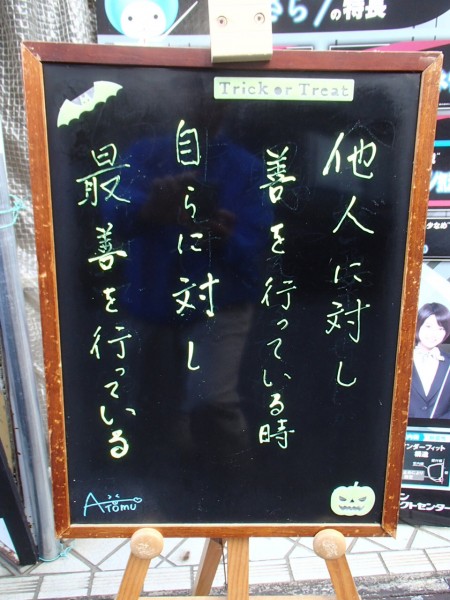 の特長
Trick or Treat
他人に対し
善を行っている時
自らに対し
最善を行っている
ATOMU